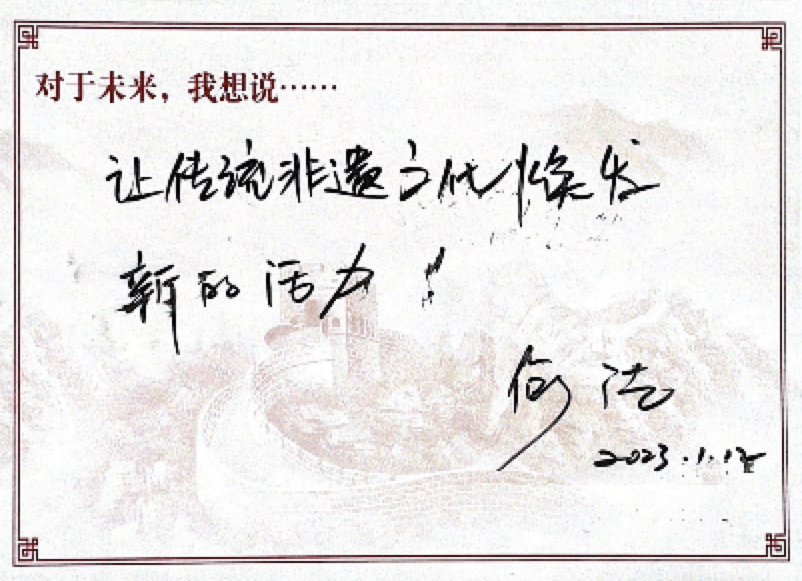 对于未来，我想说……
让传统非遗文化焕发
新的活力！
何洁
2023.1.12